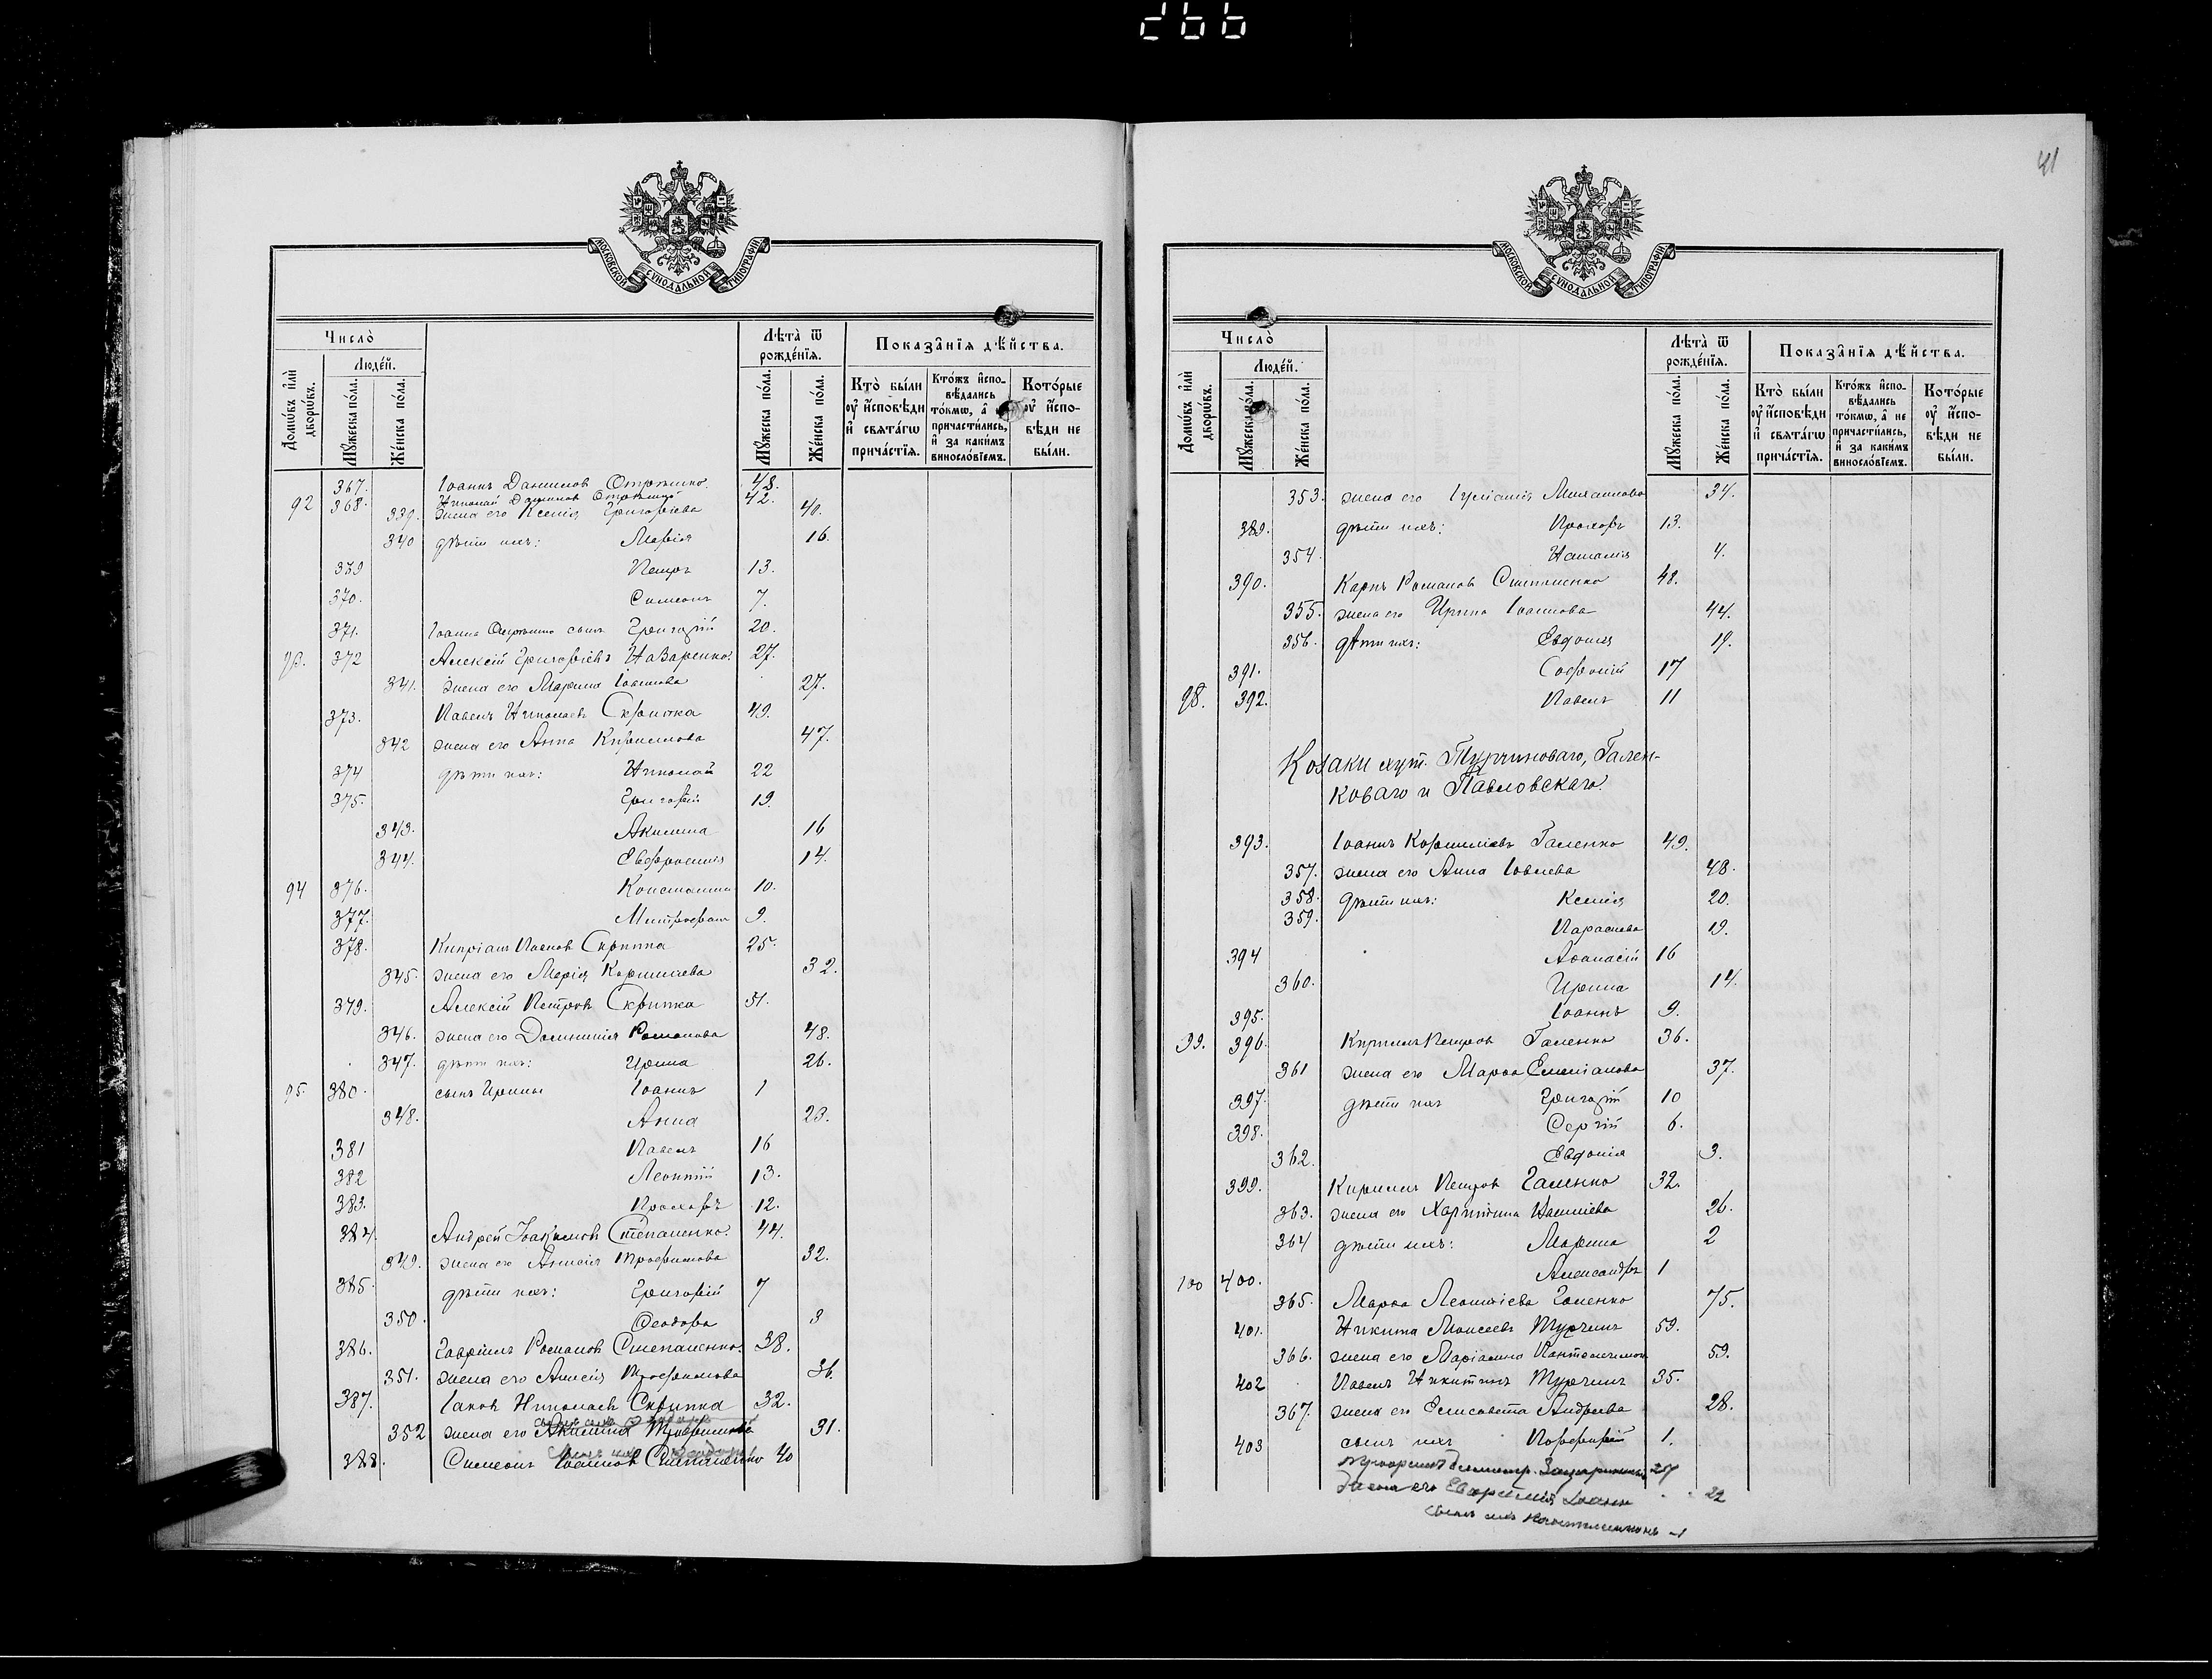 266
МОСКОВСКОЙ СУНОДАЛЬНОЙ ТИПОГРАФІИ
Число̀
Людéй.
Домѡ́въ и҆лѝ дворѡ́въ.
Мꙋ́жеска по́ла.
Же́нска по́ла.
Лѣта̀ ѿ рожде́нїѧ.
Мꙋ́жеска по́ла.
Же́нска по́ла.
Показа̑нїѧ дѣ́йства.
Кто̀ бы́ли оу҆ и҆́сповѣди и҆ свѧта́гѡ прича́стїѧ.
Кто́жъ и҆спо-
вѣ́дались
то́кмѡ, а҆
причасти́лись,
и҆ за каки́мъ
винослове́мъ.
Кото́рые
оу҆ и҆спо-
вѣди не
бы́ли.
367. Іоаннъ Даниловъ 48.
92 368. Николай Даниловъ 42.
339. жена его Ксенія Григоріева 40.
340 дѣти ихъ: Марія 16.
369 Петръ 13.
370. Симеонъ 7.
371. Іоанна сынъ Григорій 20.
93. 372 Алексій Григоріевъ Назаренко. 27.
341. жена его Марина 27.
373. Павелъ Николаевъ Скрипка 49.
342 жена его Анна Кириллова 47.
374 дѣти ихъ: Николай 22
375. Григорій 19.
343. Акилина 16
344. Евфросинія 14.
94 376. Константинъ 10.
377. Митрофанъ 9.
378. Кипріанъ Скрипка 25.
345. жена его Марія Корниліева 32.
379. Алексій Петровъ Скрипка 51.
346. жена его Домникія Романова 48.
347. дѣти ихъ: Ирина 26.
95. 380. сынъ Ирины Іоаннъ 1
348. Анна 23.
381 Павелъ 16
382 Леонтій 13.
383. Прохоръ 12.
384. Андрей Іоакимовъ Степаненко. 44.
349. жена его Анисія Трофимова 32.
385. дѣти ихъ: Григорій 7
350. Ѳеодора 3
386. Гавріилъ Романовъ Степаненко. 38.
351. жена его Анисія Трофимова 36.
387. Іаковъ Николаевъ Скрипка 32.
352 жена его Акилина Трофимова 31.
388. Симеонъ Іоанновъ Степаненко 40
41
МОСКОВСКОЙ СУНОДАЛЬНОЙ ТИПОГРАФІИ
Число̀
Людéй.
Домѡ́въ и҆лѝ дворѡ́въ.
Мꙋ́жеска по́ла.
Же́нска по́ла.
Лѣта̀ ѿ рожде́нїѧ.
Мꙋ́жеска по́ла.
Же́нска по́ла.
Показа̑нїѧ дѣ́йства.
Кто̀ бы́ли оу҆ и҆́сповѣди и҆ свѧта́гѡ прича́стїѧ.
Кто́жъ и҆спо-
вѣ́дались
то́кмѡ, а҆ не
причасти́лись,
и҆ за каки́мъ
винослове́мъ.
Кото́рые
оу҆ и҆спо-
вѣди не
бы́ли.
353. жена его Іуліанія Михаилова 34.
389. дѣти ихъ: Прохоръ 13.
354. Наталія 4.
390. Карпъ Романовъ Степаненко 48.
355. жена его Ирина Іоаннова 44.
356. дѣти ихъ: Евдокія 19.
391. Софроній 17
98. 392. Павелъ 11
Козаки хут. Турчиноваго, Гален-
коваго и Павловскаго.
393. Іоаннъ Корниліевъ Галенко 49.
357. жена его Анна 48.
358. дѣти ихъ: Ксенія 20.
359. Параскева 19.
394 Аѳанасій 16
360. Ирина 14.
395. Іоаннъ 9.
99. 396. Кириллъ Петровъ Галенко 36.
361 жена его Марѳа Емиліанова 37.
397. дѣти ихъ Григорій 10
398. Сергій 6.
362. Евдокія 3.
399. Кириллъ Петровъ Галенко 32.
363. жена его Харитина 26.
364 дѣти ихъ: Марина 2
100 400. Александръ 1
365. Марѳа Леонтіева Галенко 75.
401. Никита Моисеевъ Турчинъ 59.
366. жена его Маріамна 59.
402 Павелъ Никитинъ Турчинъ 35.
367. жена его Елисавета Андреева 28.
403 сынъ ихъ Порфирій 1.
27
жена его Іоанн 22
сынъ ихъ 1